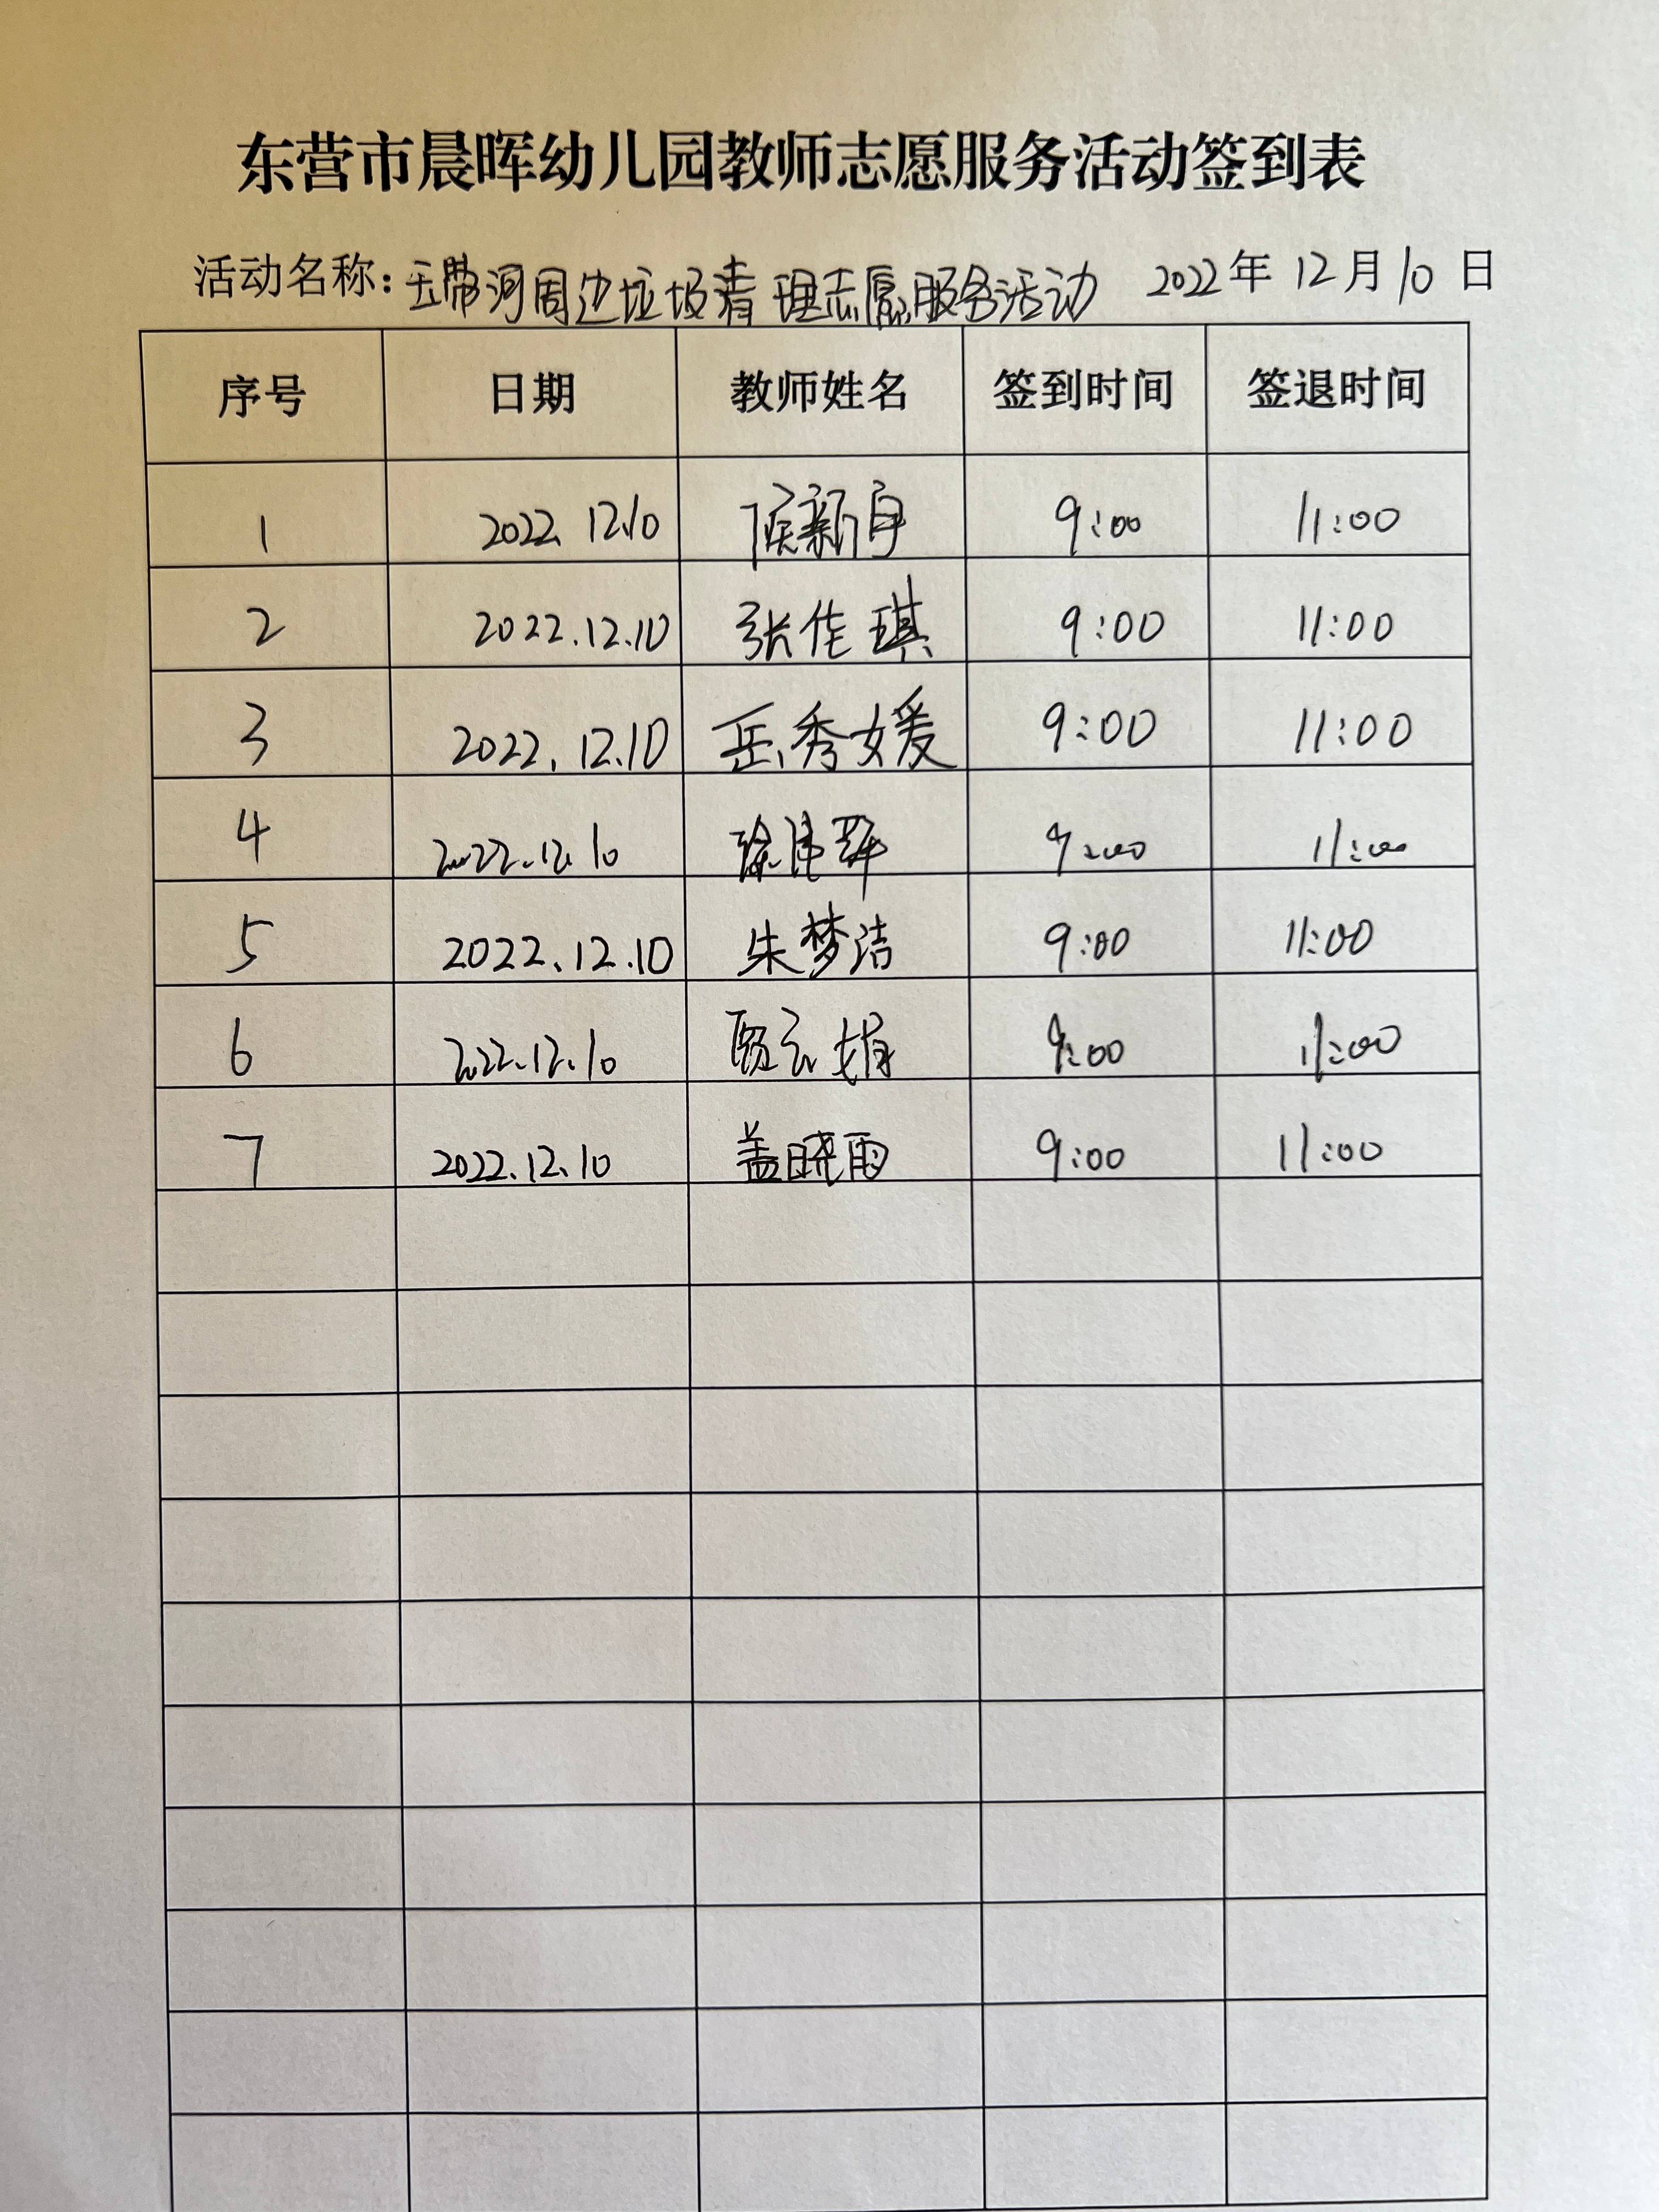 东营市晨晖幼儿园教师志愿服务活动签到表
活动名称：玉带河周边垃圾清理志愿服务活动 2022年12月10日
序号 日期 教师姓名 签到时间 签退时间
1 2022.12.10 侯新月 9:00 11:00
2 2022.12.10 张佳琪 9:00 11:00
3 2022.12.10 岳秀媛 9:00 11:00
4 2022.12.10 9:00 11:00
5 2022.12.10 朱梦洁 9:00 11:00
6 2022.12.10 顾云娟 9:00 11:00
7 2022.12.10 盖晓雨 9:00 11:00